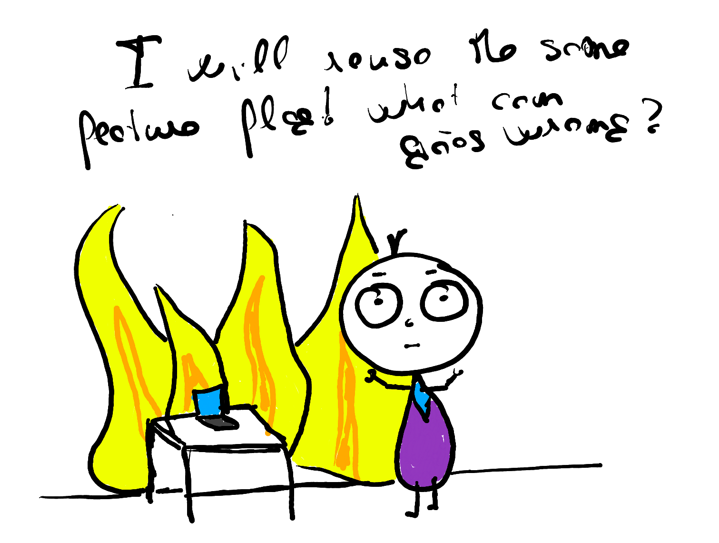 I will reuse the same
feature flag! what can
goes wrong?